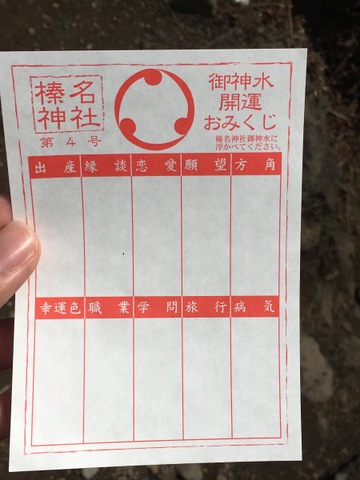 榛名
神社
第4号
御神水
開運
おみくじ
榛名神社御神水に
浮かべてください。
出産 縁談 恋愛 願望 方角
幸運色 職業 学問 旅行 病気